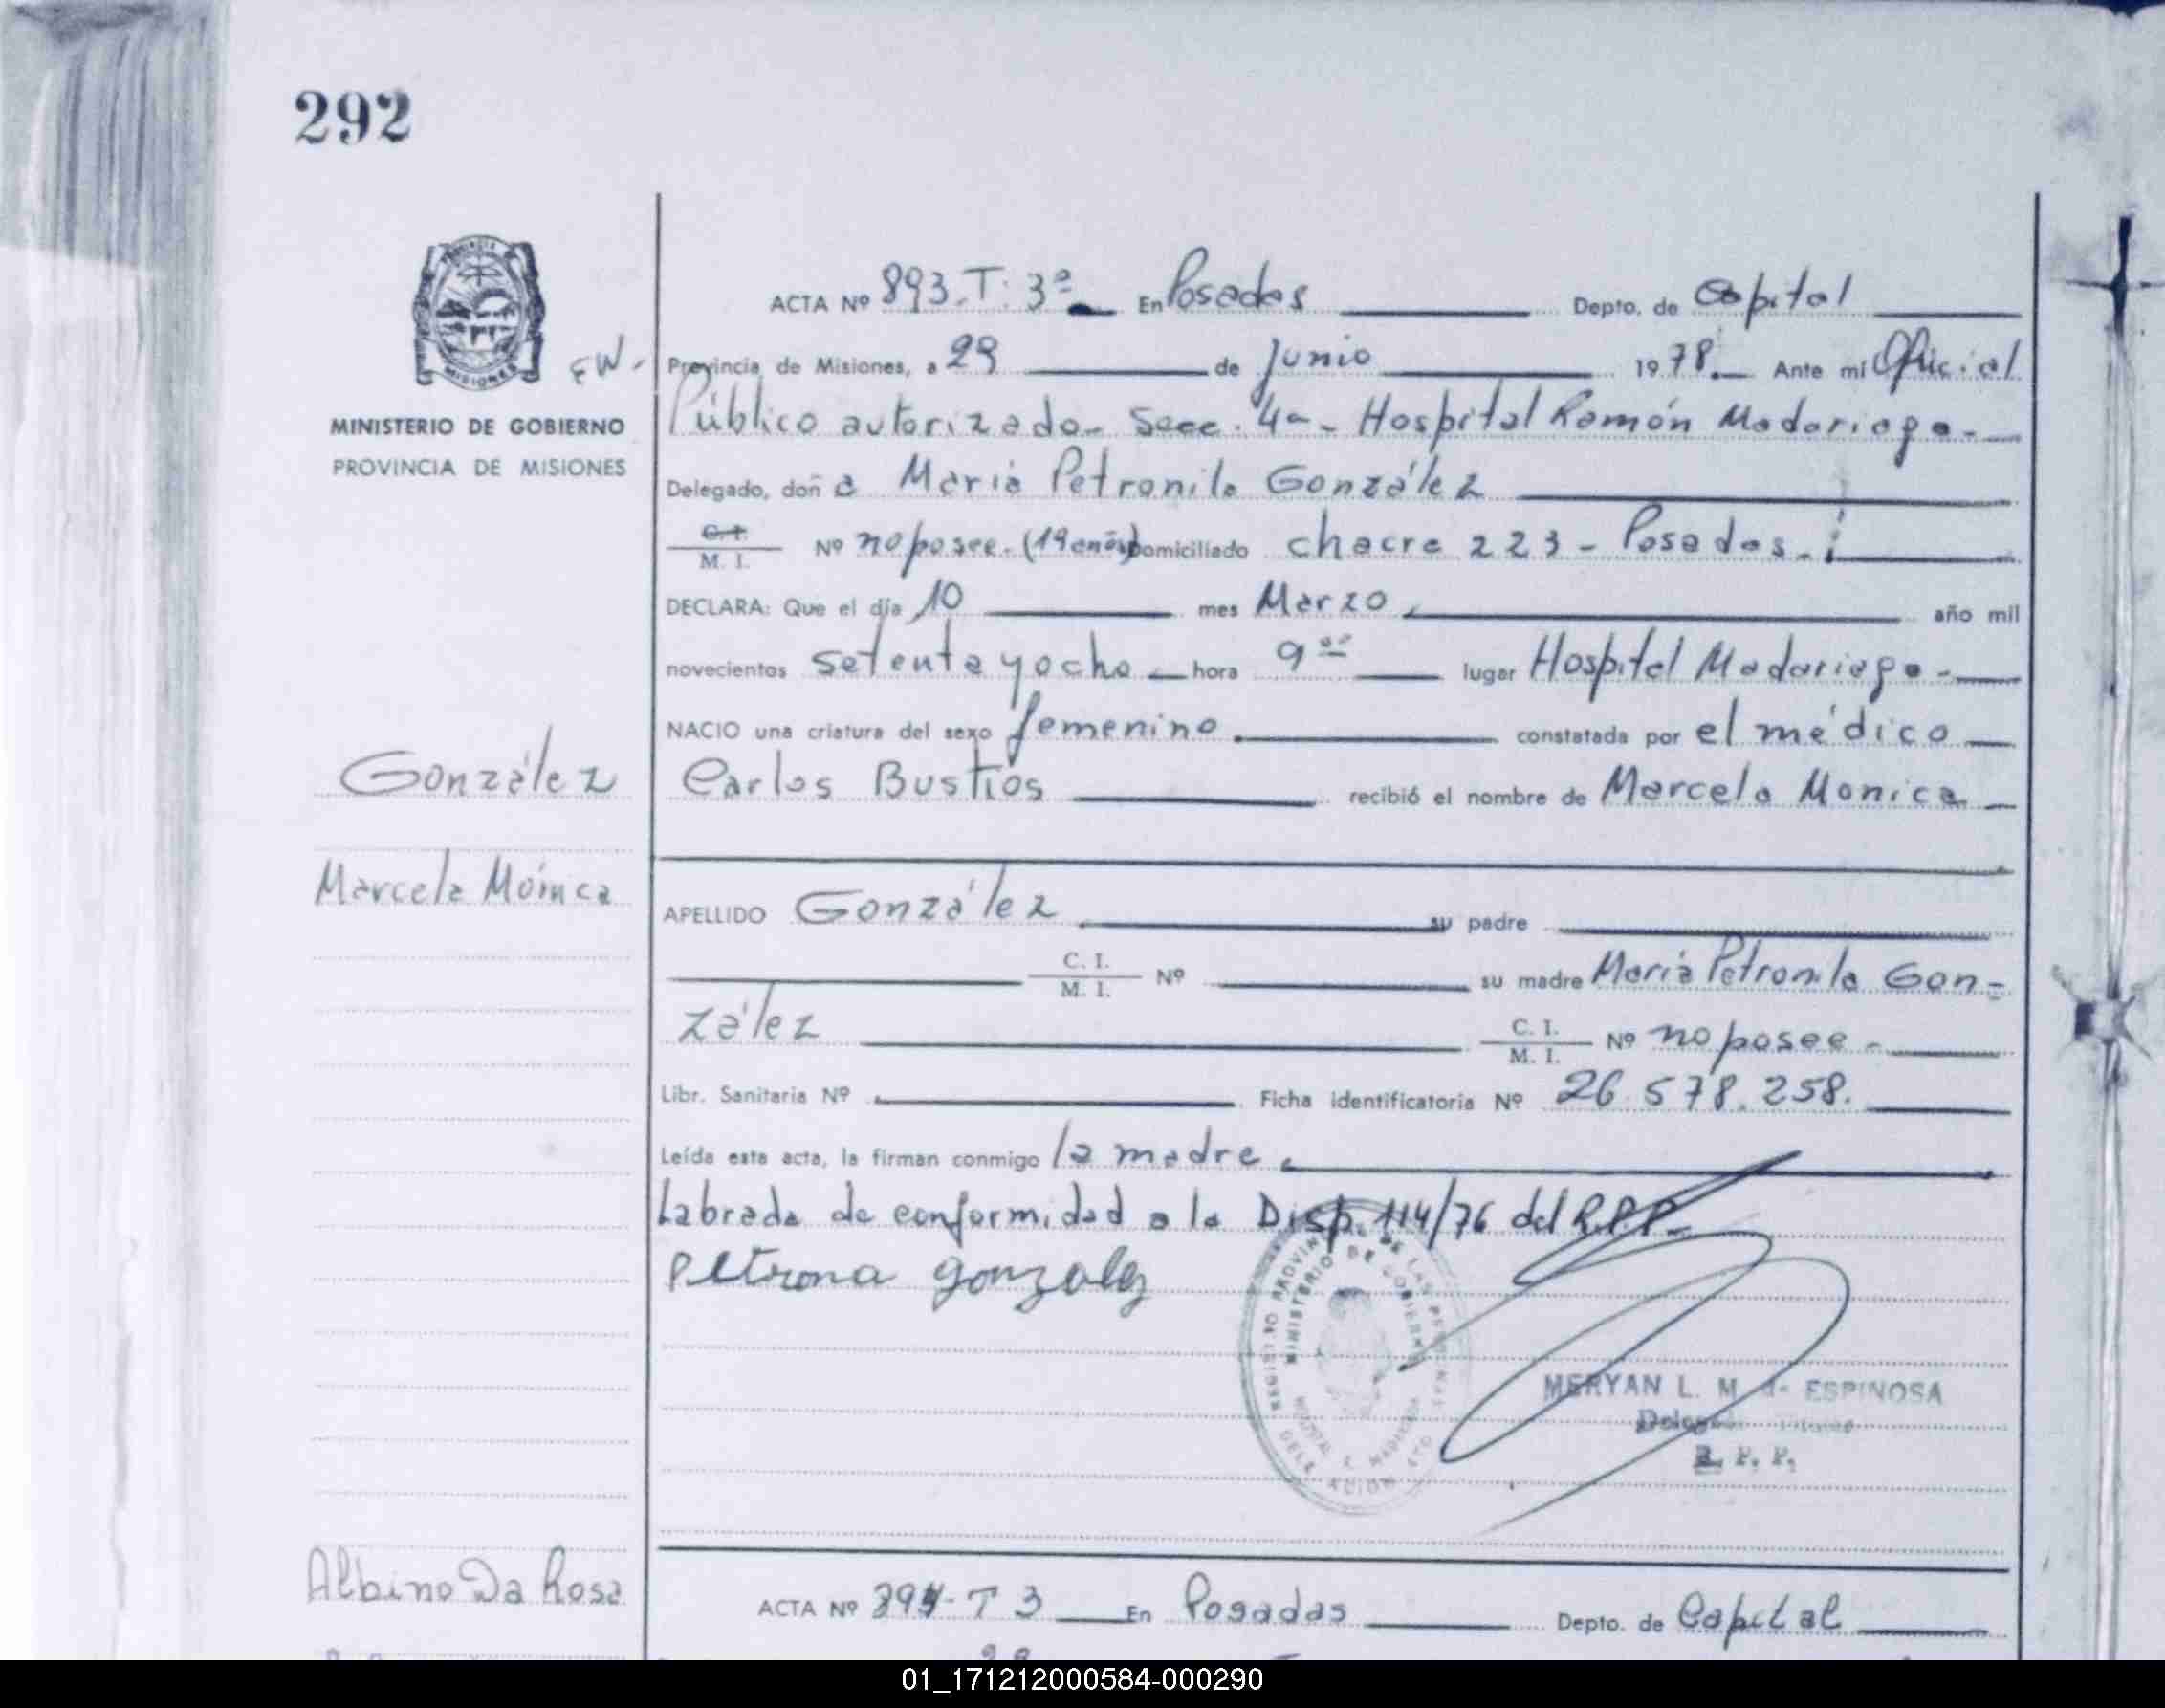 292
ACTA Nº 893.T. 3º En Posadas Depto. de Capital
EW.
Provincia de Misiones, a 29 de Junio 1978. Ante mí Oficial
Público autorizado- Secc. 4ª- Hospital Ramón Madariaga-
MINISTERIO DE GOBIERNO
PROVINCIA DE MISIONES
Delegado, doña María Petronila González
C. I.
M. I. Nº no posee. (19 años) Domiciliado chacra 223 - Posadas.
DECLARA: Que el día 10 mes Marzo año mil
novecientos setenta y ocho hora 9 00 lugar Hospital Madariaga-
NACIO una criatura del sexo femenino. constatada por el médico
González
Carlos Bustíos recibió el nombre de Marcela Monica
Marcela Mónica
APELLIDO González su padre
C. I.
M. I. Nº su madre María Petronila Gon-
zález C. I.
M. I. Nº no posee-
Libr. Sanitaria Nº Ficha identificatoria Nº 26.578.258.
Leída esta acta, la firman conmigo la madre.
Labrada de conformidad a la Disp. 114/76 del R.P.P-
Petrona gonzalez
REGISTRO PROVINCIAL DE LAS PERSONAS
MINISTERIO DE GOBIERNO
HOSPITAL R. MADARIAGA
DELEGACION
MERYAN L. M. de ESPINOSA
Delegada Titular
R. P. P.
Albino Da Rosa
ACTA Nº 894-T 3 En Posadas Depto. de Capital
01_171212000584-000290